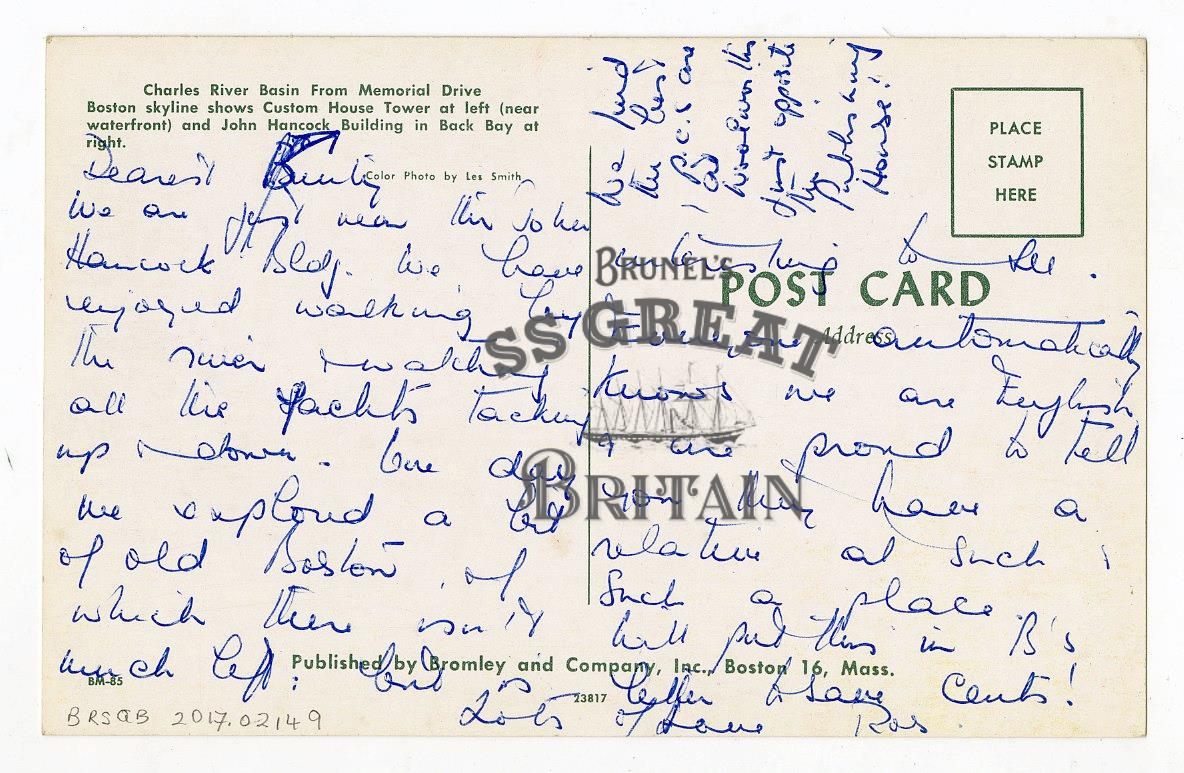 Charles River Basin From Memorial Drive
Boston skyline shows Custom House Tower at left (near
waterfront) and John Hancock Building in Back Bay at
right.
Color Photo by Les Smith
Dearest
We are just near the John
Hancock Bldg. We have
enjoyed walking by
the river & watching
all the yachts tacking
up & down. One day
we explored a bit
of old Boston, of
which there isn't
much left: but is
interesting to see.
Everyone automatically
knows we are English
& are proud to tell
you they have a
relative at such &
such a place.
Will put this in B's
letter to save cents!
Lots of Love Ros.
We find
the best
p.c.s are
at
Woolworths
just opposite
the
publishing
House!!
PLACE
STAMP
HERE
POST CARD
Address
BRUNEL'S
SS GREAT
BRITAIN
Published by Bromley and Company, Inc., Boston 16, Mass.
BM-85
23817
BRSGB 2017.02149